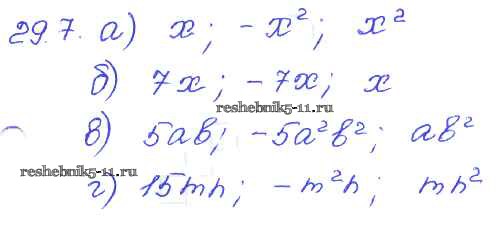 29.7. а) x; -x²; x²
б) 7x; -7x; x
reshebnik5-11.ru
в) 5ab; -5a²b²; ab²
reshebnik5-11.ru
г) 15mn; -m²n; mn²